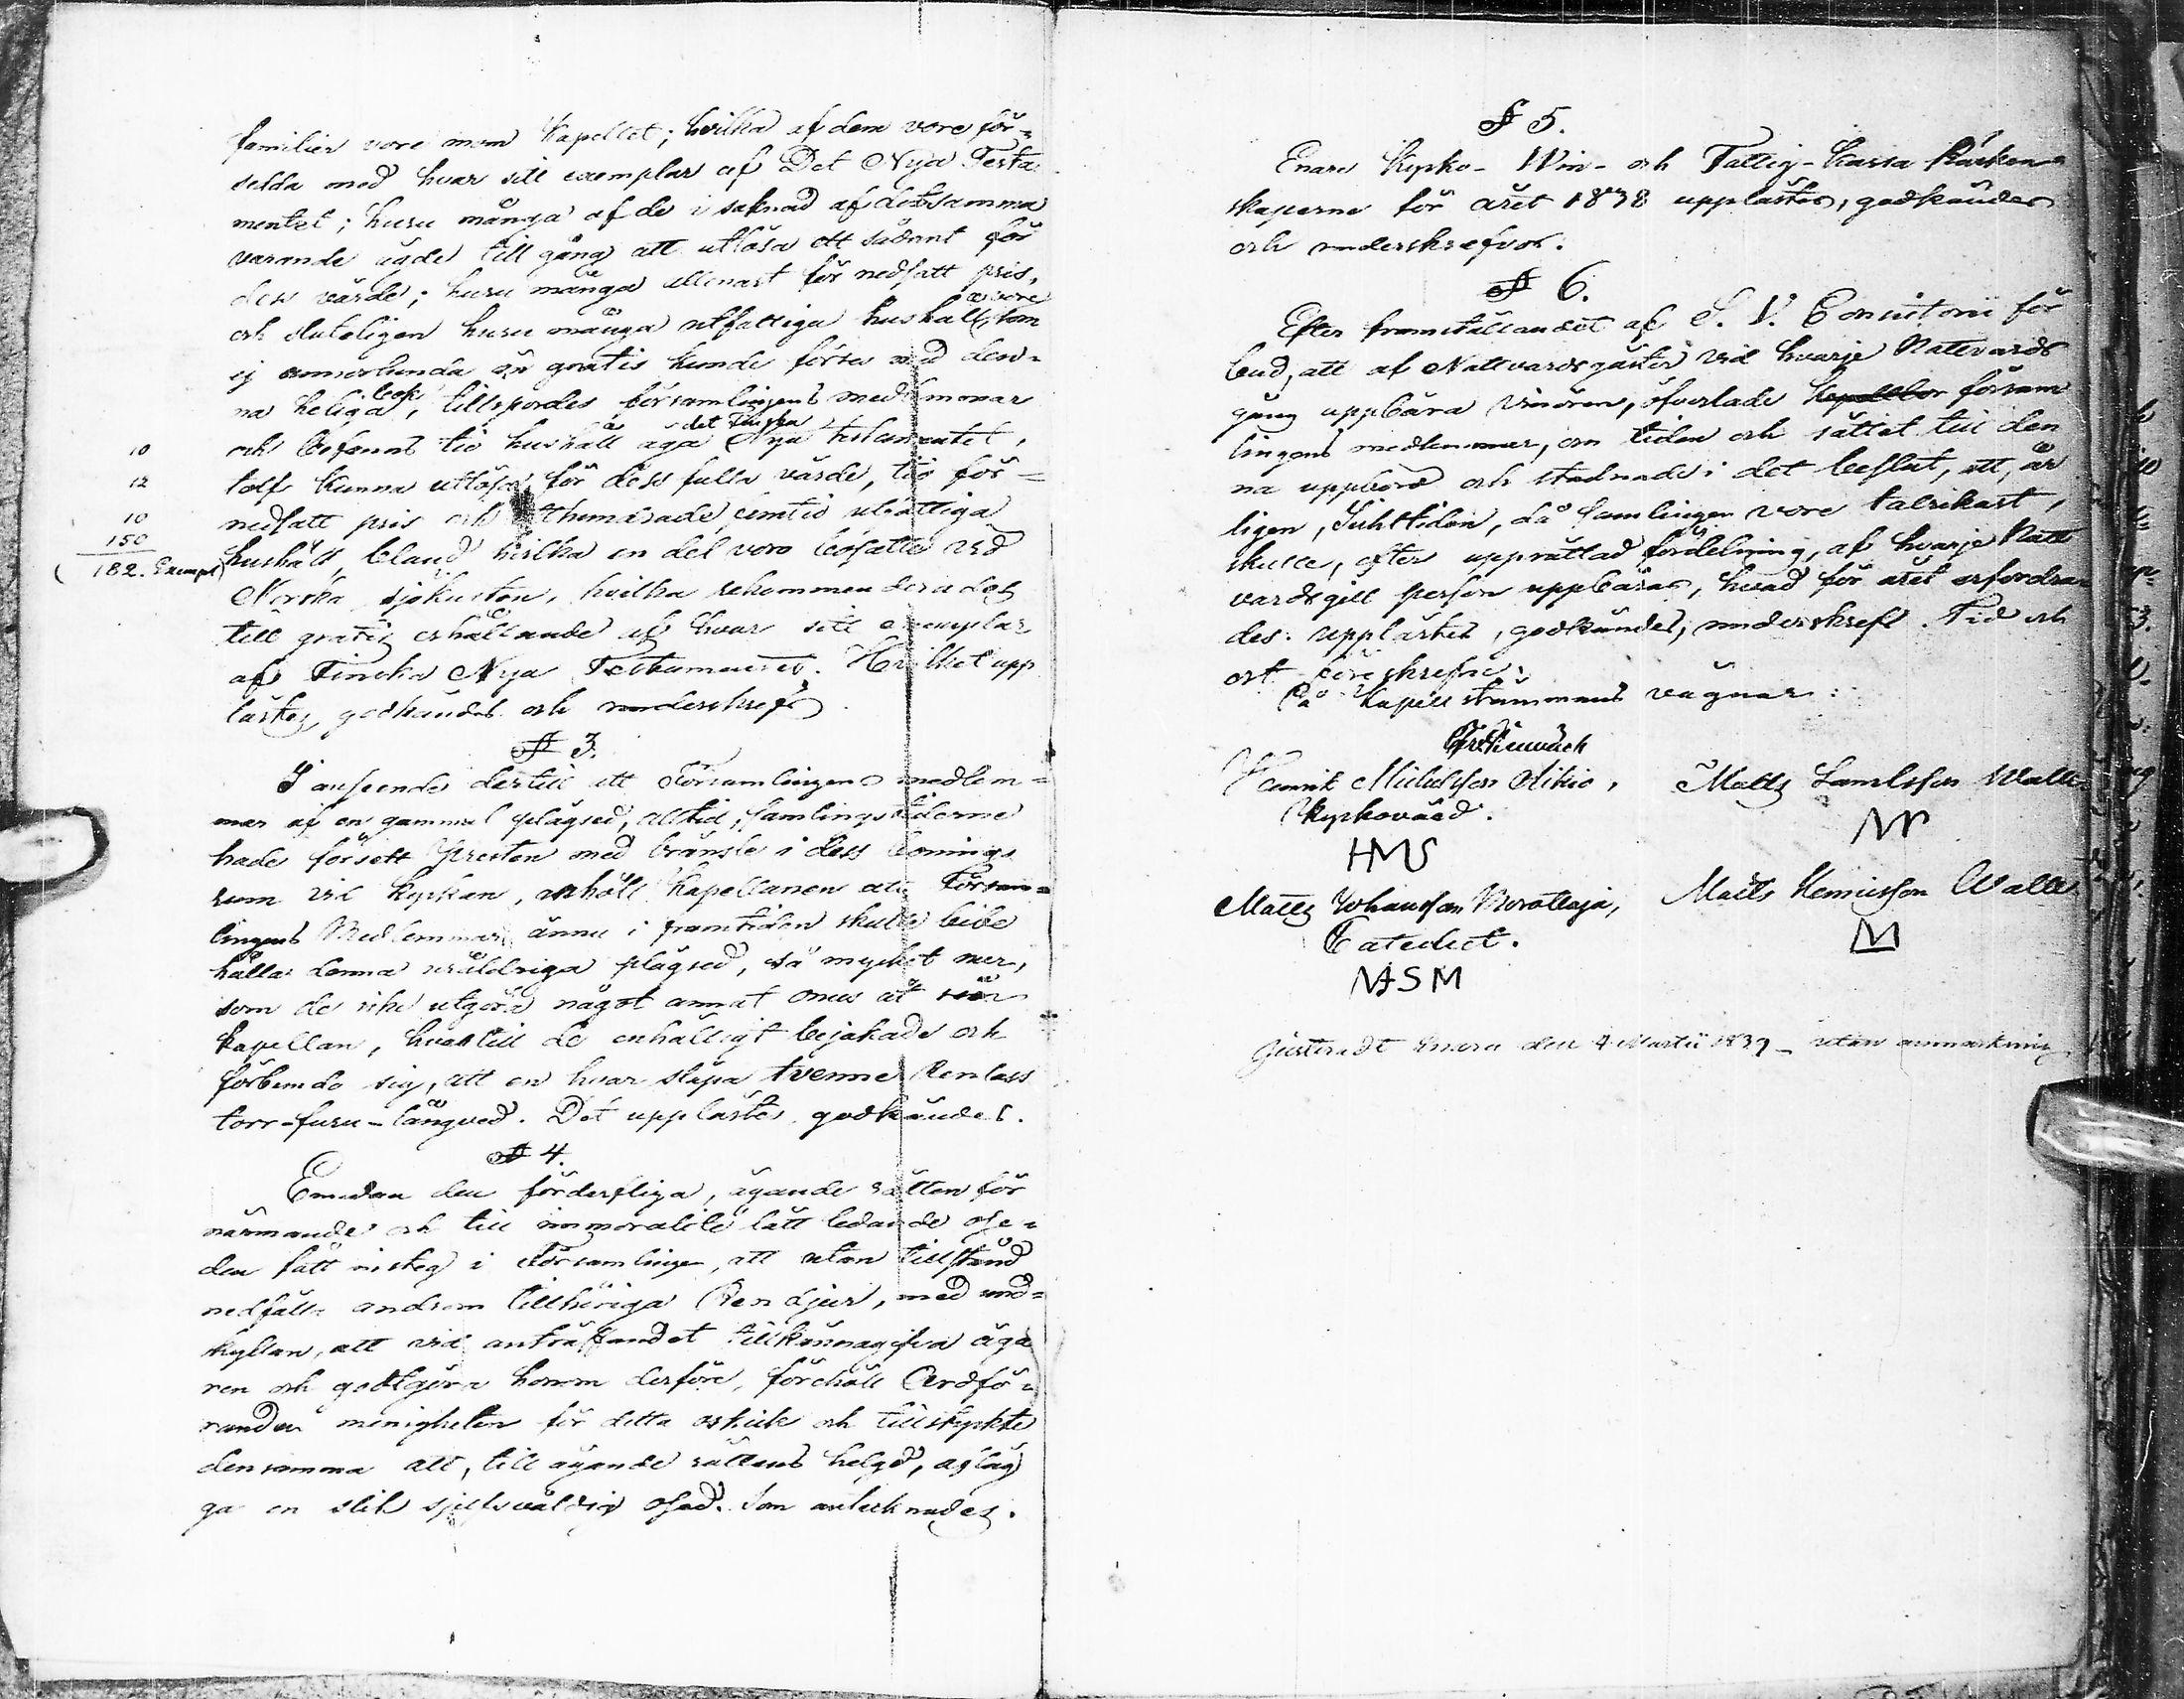 familier vore inom Kapellet; hvilka af dem vore för=
sedda med hvar sitt exemplar af Det Nya Testa
mentet; huru många af de i saknad af detsamma
varande ägde tillgång att utlösa ett sådant för
dess värde; huru många allenast för nedsatt pris,
och sluteligen huru många utfattiga hushåll vore, som
ej annorlunda än gratis kunde förses med den=
na heliga bok, tillspordes församlingens medlemmar
och befanns tio hushåll äga det Finska Nya testamentet,
10
tolf kunna utlösa för dess fulla värde, tio för=
12
nedsatt pris och etthundrade femtio utfattiga
10
150
hushåll, bland hvilka en del voro bosatte vid
(182. Exempl)
Norska sjökusten, hvilka rekommenderades
till gratis erhållande af hvar sitt exemplar
af Finska Nya Testamentet. Hvilket upp
lästes, godkändes och underskrefs.
§ 3.
I anseende dertill att Församlingens medlem=
mar af en gammal plägsed, alltid, samlingstiderne
hade försett Presten med bränsle i dess bonings
rum vid kyrkan, anhöll Kapellanen att Försam=
lingens Medlemmar ännu i framtiden skulle bibe
hålla denna uråldriga plägsed, så mycket mer,
som de icke utgöra något annat onus åt sin
Kapellan, hvartill de enhälligt bejakade och
förbundo sig, att en hvar släpa tvenne Renlass
torr-furu-långved. Det upplästes, godkändes.
§ 4.
Emedan den förderfliga, ägande rätten för
närmande och till immoralité lätt ledande ose=
den fått insteg i Församlingen, att utan tillstånd
nedfälla androm tillhöriga Ren djur, med und=
skyllan, att vid anträffandet tillkännagifva äga
ren och godtgöra honom derföre, förehöll Ordfö=
randen menigheten för detta oskick och tillstyrkte
densamma att, till ägande rättens helgd, aflägg
ga en slik sjelfsvåldig osed. Som antecknades.
§ 5.
Enare Kyrko- Win- och Fattig-Kassa Räken=
skaperne för året 1838 upplästes, godkändes
och underskrefvos.
§ 6.
Efter framställandet af S. V. Consistorii för
bud, att af Nattvardsgäster vid hvarje Nattvards
gång uppbära vinören, öfverlade Kapellbor försam
lingens medlemmar, om tiden och sättet till den
na uppbörd och stadnade i det beslut, att, år
ligen, , då samlingen vore talrikast,
skulle, efter upprättad fördelning, af hvarje Natt
vardsgill person uppbäras, hvad för året erfordra=
des: upplästes, godkändes, underskrefs. Tid och
ort föreskrefne.
På Kapellstämmans vägnar:
Henrik Michelsson Aikio,
Kyrkovärd.
HMS
Matts Samelsson Walle
M
Matts Johansson Morottaja,
Catechet.
MSM
Matts Henriksson Walle
M
Justeradt Enare den 4 Martii 1839 - utan anmärkning